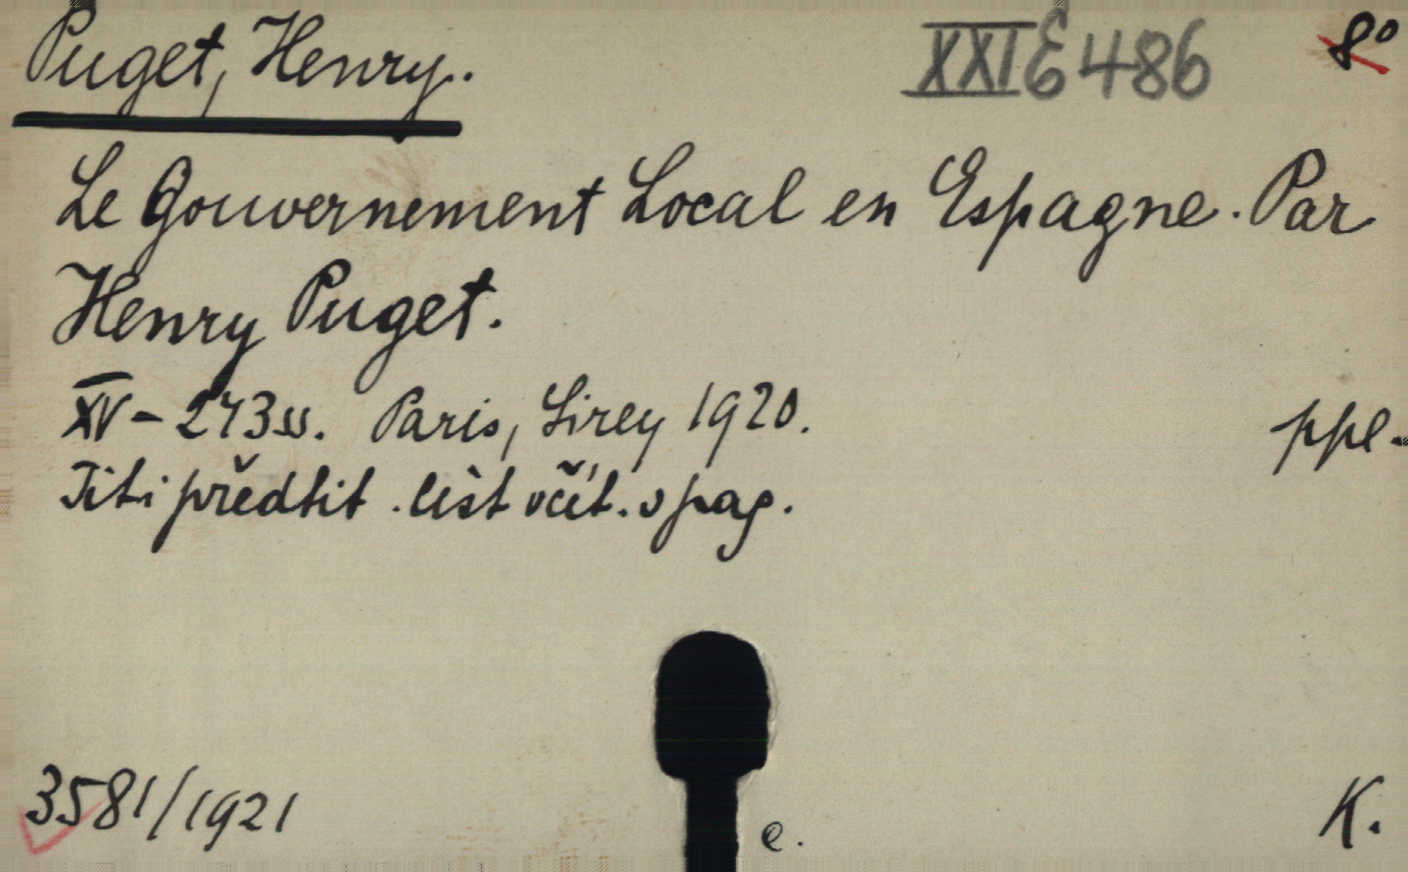 Puget, Henry. XXI E 486 8°
Le Gouvernement Local en Espagne. Par
Henry Puget.
XV - 273 ss. Paris, Sirey 1920. ppl.
Tit i předtit. list včít. v pag.
3581/1921 e. K.